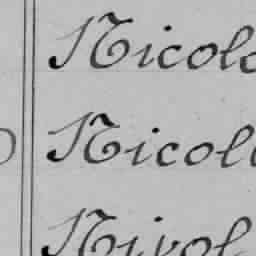 Nicolo
Nicol
Nivol